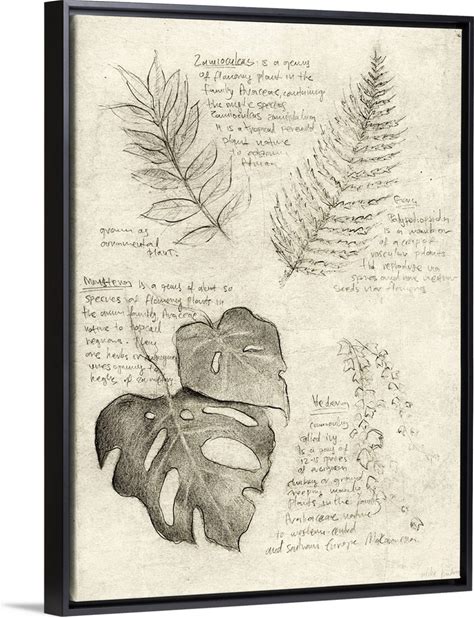 Zamioculcas is a genus
of flowering plant in the
family Araceae, containing
the single species
Zamioculcas
It is a tropical perennial
plant native
to
grown as
ornamental
plant.
Fern
is a member
of a group of
vascular plants
that reproduce via
spores and have neither
seeds nor flowers
Monstera is a genus of about 50
species of flowering plants in
the arum family, Araceae
native to tropical
regions. They
are herbs or
vines
Hedera
commonly
called ivy
is a genus of
12-15 species
of evergreen
climbing or ground
creeping woody
plants in the family
Araliaceae native
to western, central
and southern Europe Macaronesia